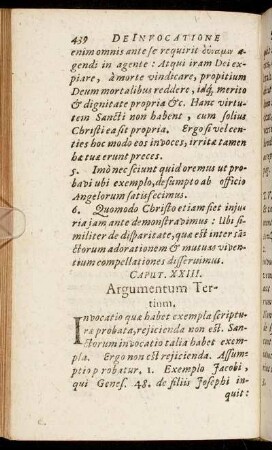 439 DE INVOCATIONE
enim omnis ante se requirit δύναμιν a-
gendi in agente : Atqui iram Dei ex-
piare, à morte vindicare, propitium
Deum mortalibus reddere, idq́, merito
& dignitate propria &c. Hanc virtu-
tem Sancti non habent, cum solius
Christi ea sit propria. Ergo si vel cen-
ties hoc modo eos invoces, irritæ tamen
hæ tuæ erunt preces.
5. Imò nec sciunt quid oremus ut pro-
bavi ubi exemplo, desumpto ab officio
Angelorum satisfecimus.
6. Quomodo Christo etiam fiet inju-
ria jam ante demonstravimus : Ubi si-
militer de disparitate, quæ est inter sā-
ctorum adorationem & mutuas viven-
tium compellationes disseruimus.
CAPUT. XXIII.
Argumentum Ter-
tium.
Invocatio quæ habet exempla scriptu-
ræ probata, rejicienda non est. San-
ctorum invocatio talia habet exem-
pla. Ergo non est rejicienda. Assum-
ptio probatur, 1. Exemplo Jacobi,
qui Genes. 48. de filiis Josephi in-
quit: